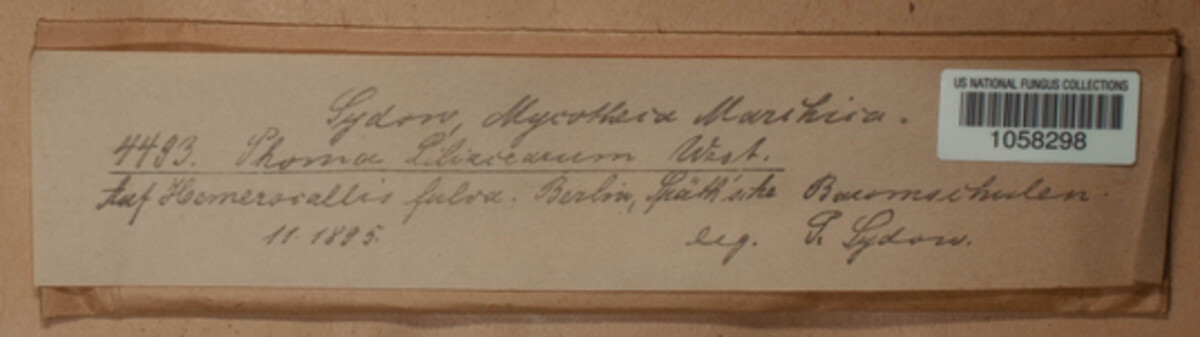 Sydow, Mycotheca Marchica.
4493. Phoma Liliacearum West.
Auf Hemerocallis fulva. Berlin, Späth'sche Baumschulen.
11.1895. leg. P. Sydow.
US NATIONAL FUNGUS COLLECTIONS
1058298